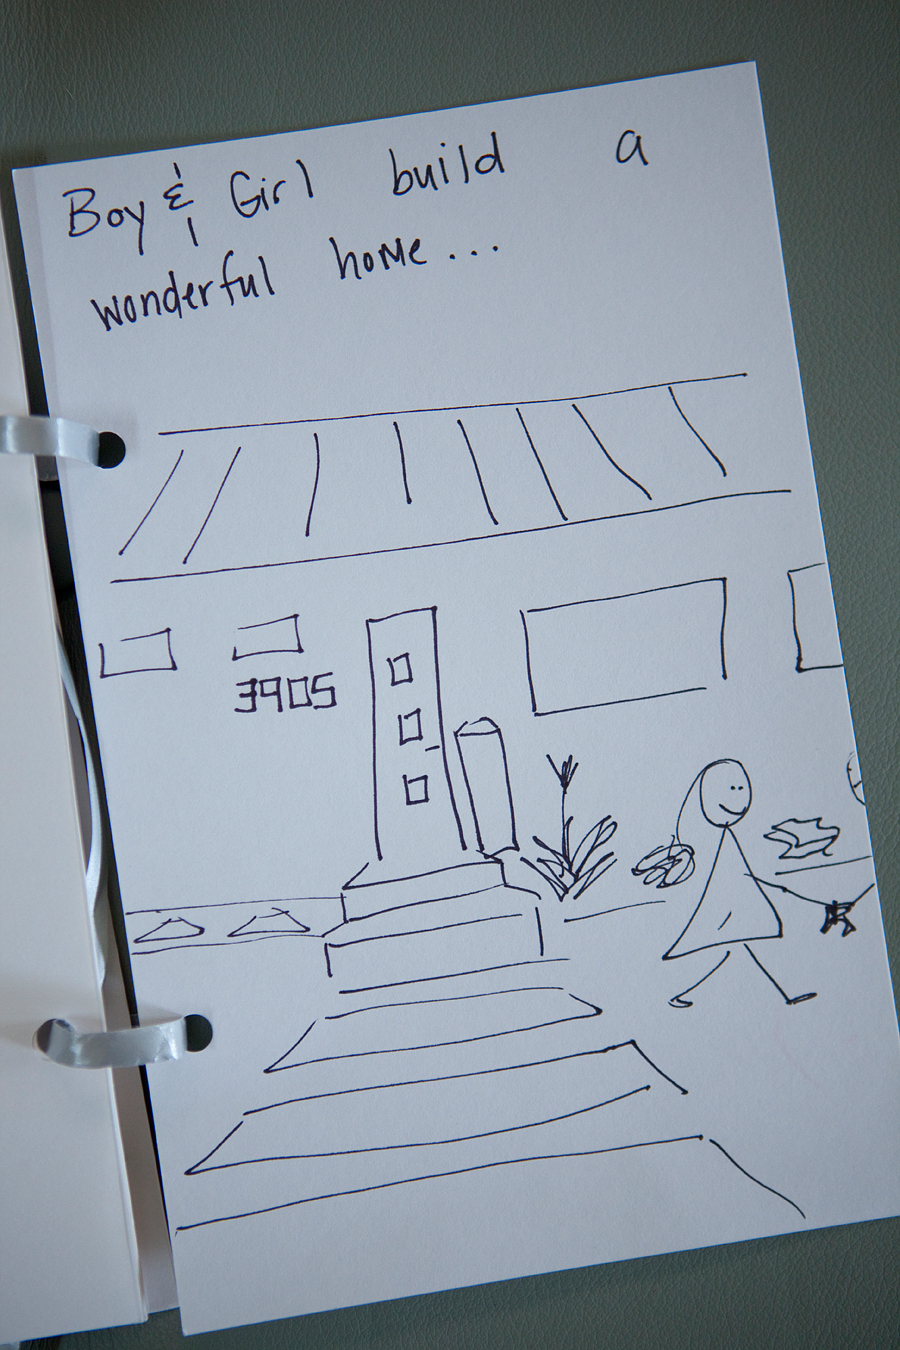 Boy & Girl build a
wonderful home...
3905